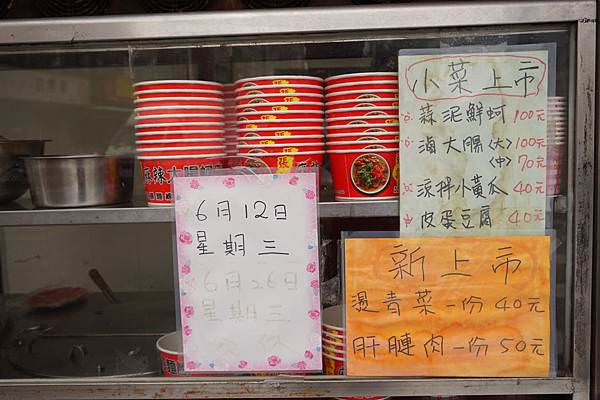 小菜上市
蒜泥鮮蚵 100元
滷大腸<大>100元
<中> 70元
涼拌小黃瓜 40元
皮蛋豆腐 40元
麻辣大腸
6月12日
星期三
6月26日
星期三
公休
新上市
燙青菜一份40元
肝腱肉一份50元